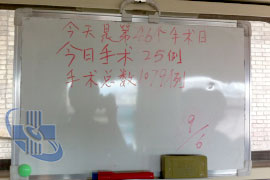 今天是第26个手术日
今日手术25例
手术总数1079例
9/6